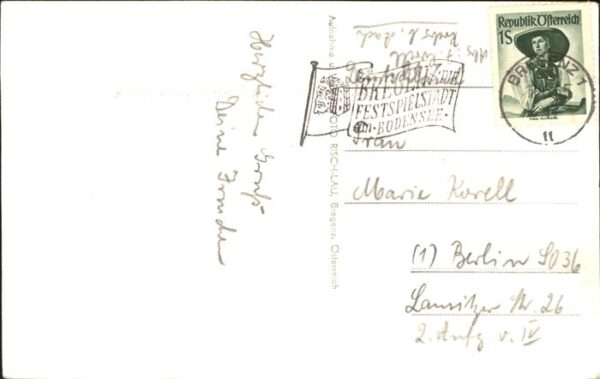 Herzlichen Gruß
Deine Freunde
Aufnahme u. FOTO RISCH-LAU, Bregenz, Österreich
Abs.
Korell
Republik Österreich
1S
BREGENZ 1
11
BREGENZ DIE
FESTSPIELSTADT
AM BODENSEE
Frau
Marie Korell
(1) Berlin SO36
Lausitzer Str. 26
2. Aufg v. IV